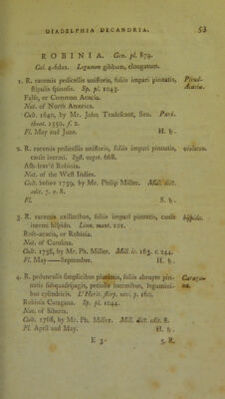 DIADELPHIA DECANDRIA. 53
ROBINIA. Gen. pl. 879.
Cal. 4-fidus. Legumen gibbum, elongatum.
1. R. racemis pedicellis unifloris, foliis impari pinnatis, Pseud-
stipulis spinosis. Sp. pl. 1043. Acacia.
False, or Common Acacia.
Nat. of North America.
Cult. 1640, by Mr. John Tradescant, Sen. Park.
theat. 1550. f. 2.
Fl. May and June. H. ♄.
2. R. racemis pedicellis unifloris, foliis impari pinnatis, violacea.
caule inermi. Syst. veget. 668.
Ash-leav'd Robinia.
Nat. of the West Indies.
Cult. before 1759, by Mr. Philip Miller. Mill. dict.
edit. 7. n. 8.
Fl. S. ♄.
3. R. racemis axillaribus, foliis impari pinnatis, caule hispida.
inermi hispido. Linn. mant. 101.
Rose-acacia, or Robinia.
Nat. of Carolina.
Cult. 1758, by Mr. Ph. Miller. Mill. ic. 163. t. 244.
Fl. May——September. H. ♄.
4. R. pedunculis simplicibus plurimis, foliis abrupte pin- Caragana.
natis subquadrijugis, petiolis inermibus, legumini-
bus cylindricis. L'Herit. stirp. nov. p. 160.
Robinia Caragana. Sp. pl. 1044.
Nat. of Siberia.
Cult. 1768, by Mr. Ph. Miller. Mill. dict. edit. 8.
Fl. April and May. H. ♄.
E 3 5. R.